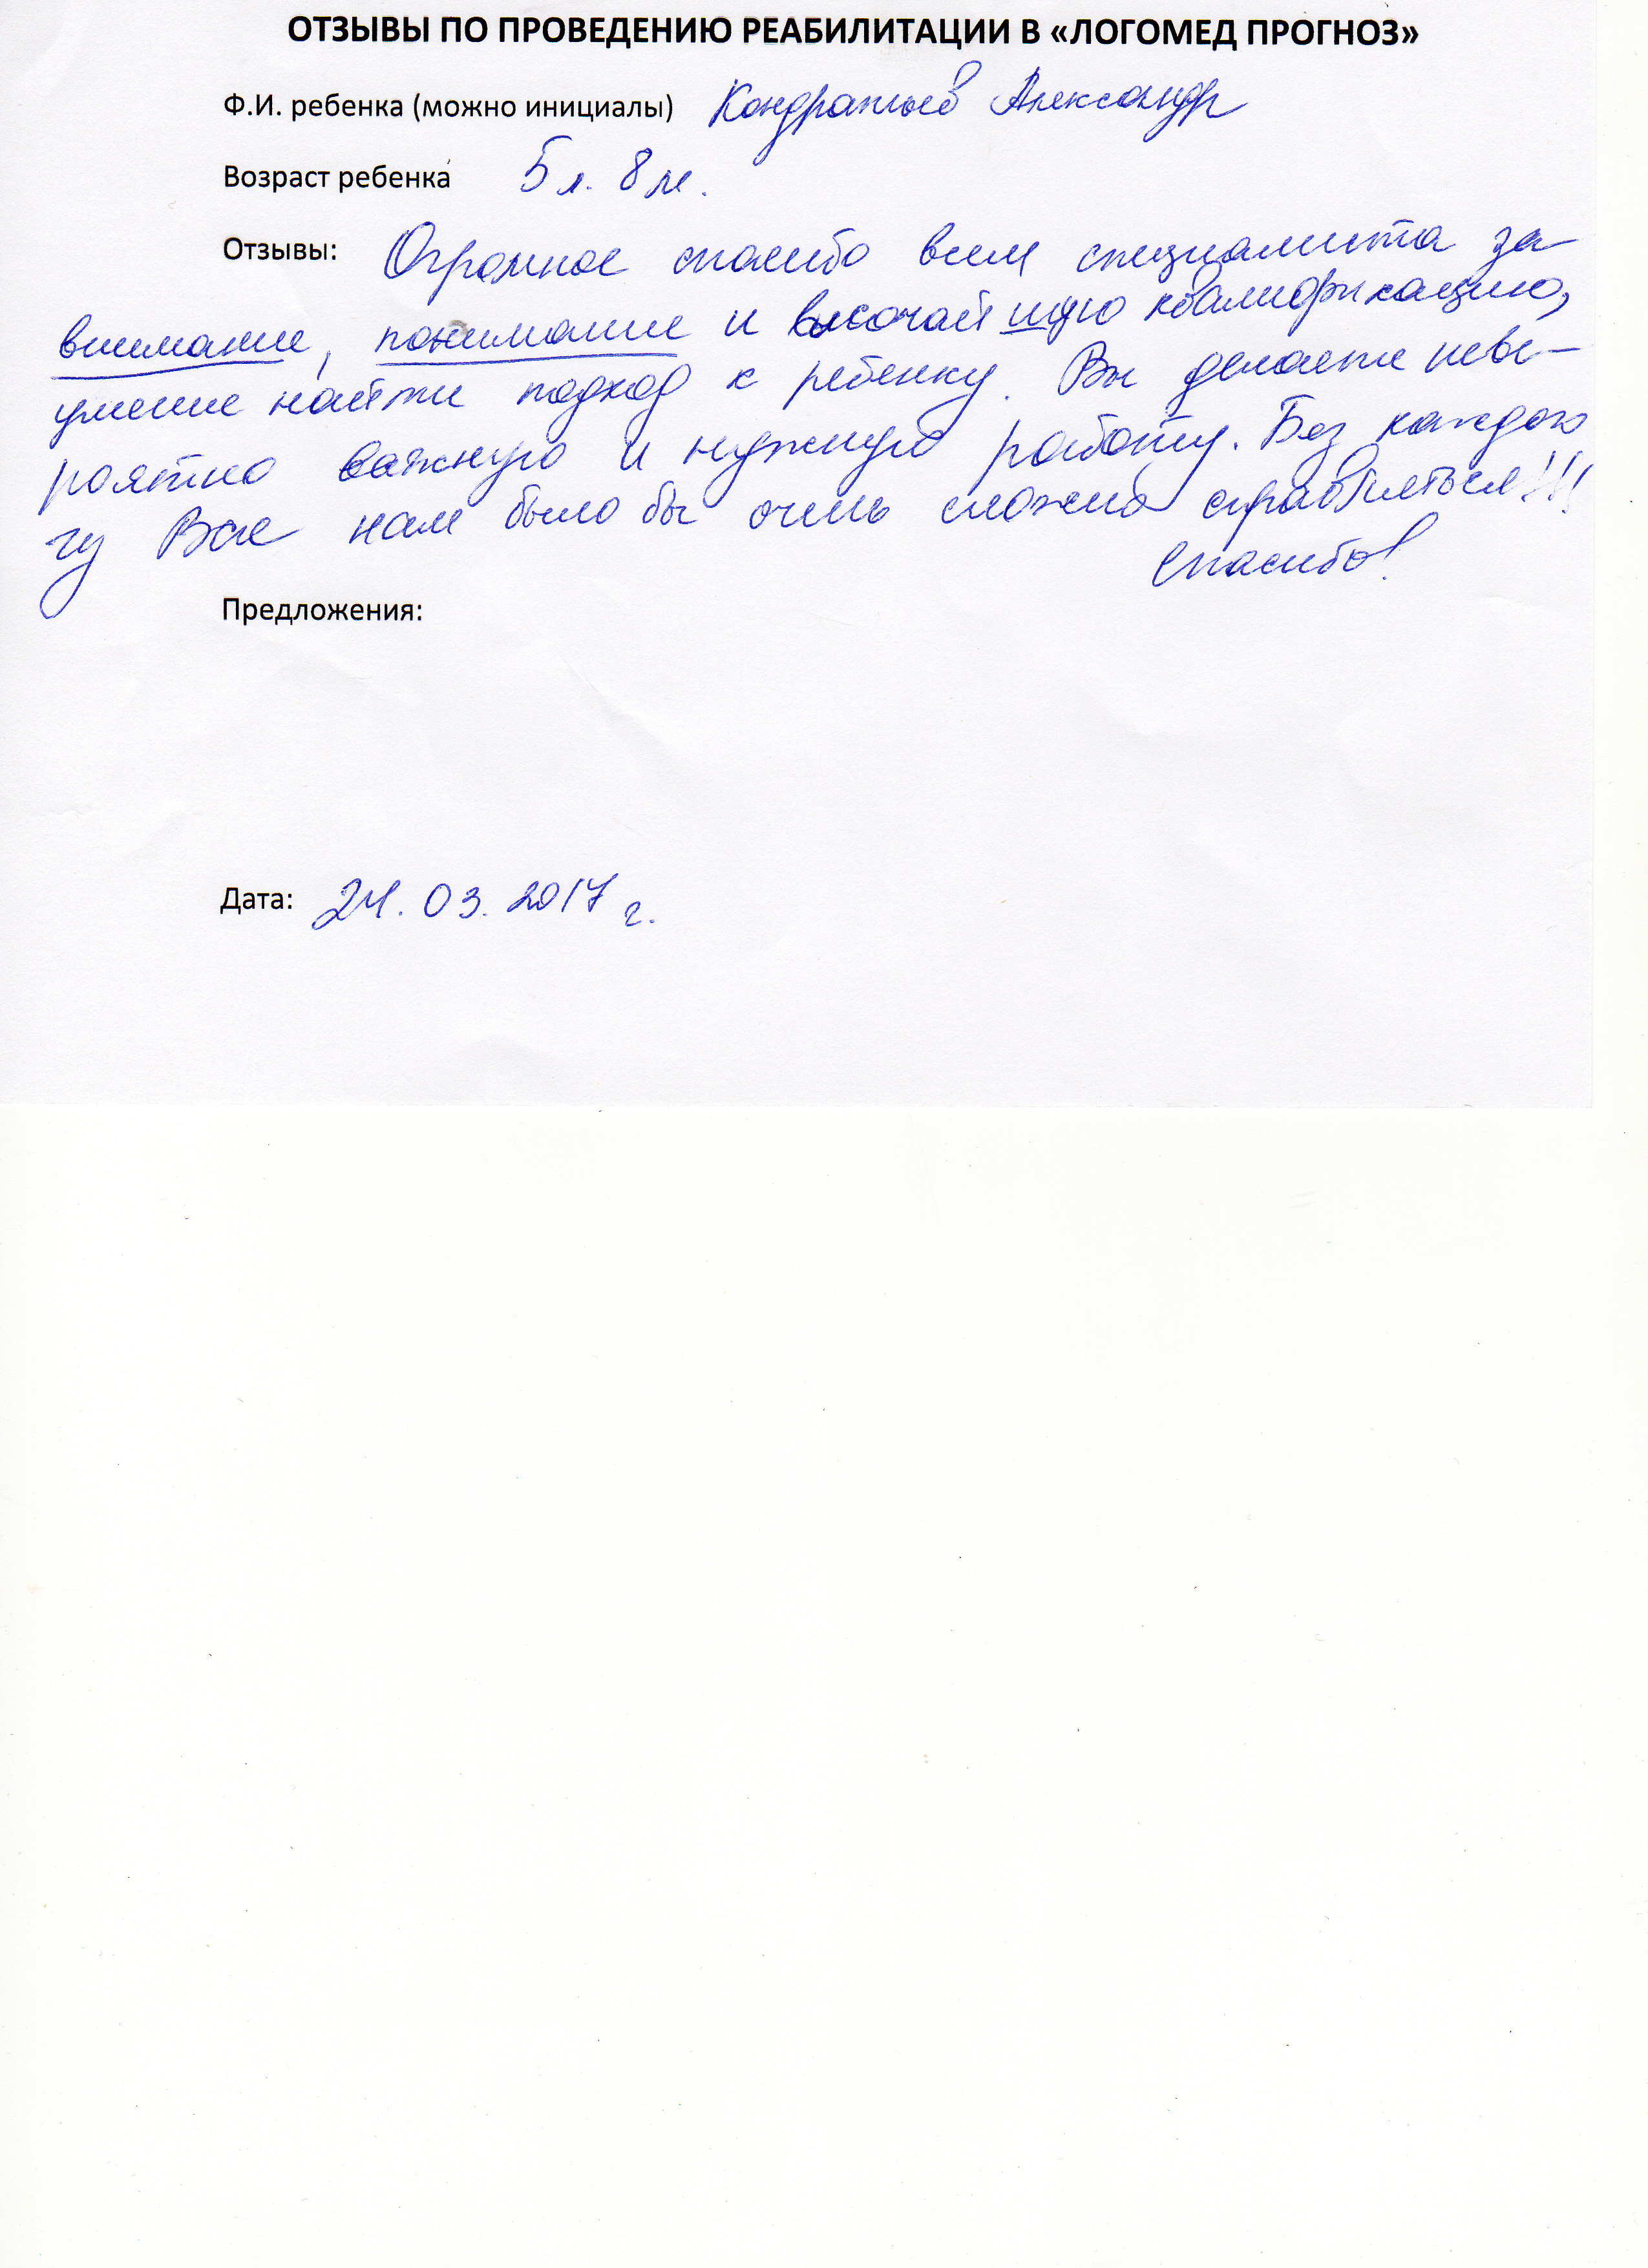 ОТЗЫВЫ ПО ПРОВЕДЕНИЮ РЕАБИЛИТАЦИИ В «ЛОГОМЕД ПРОГНОЗ»
Ф.И. ребенка (можно инициалы) Кондратьев Александр
Возраст ребенка 5 л. 8 м.
Отзывы: Огромное спасибо всем специалиста за
внимание, понимание и высочайшую квалификацию,
умение найти подход к ребенку. Вы делаете неве-
роятно важную и нужную работу. Без каждого
из Вас нам было бы очень сложно справиться!!!
Спасибо!
Предложения:
Дата: 24.03.2017 г.